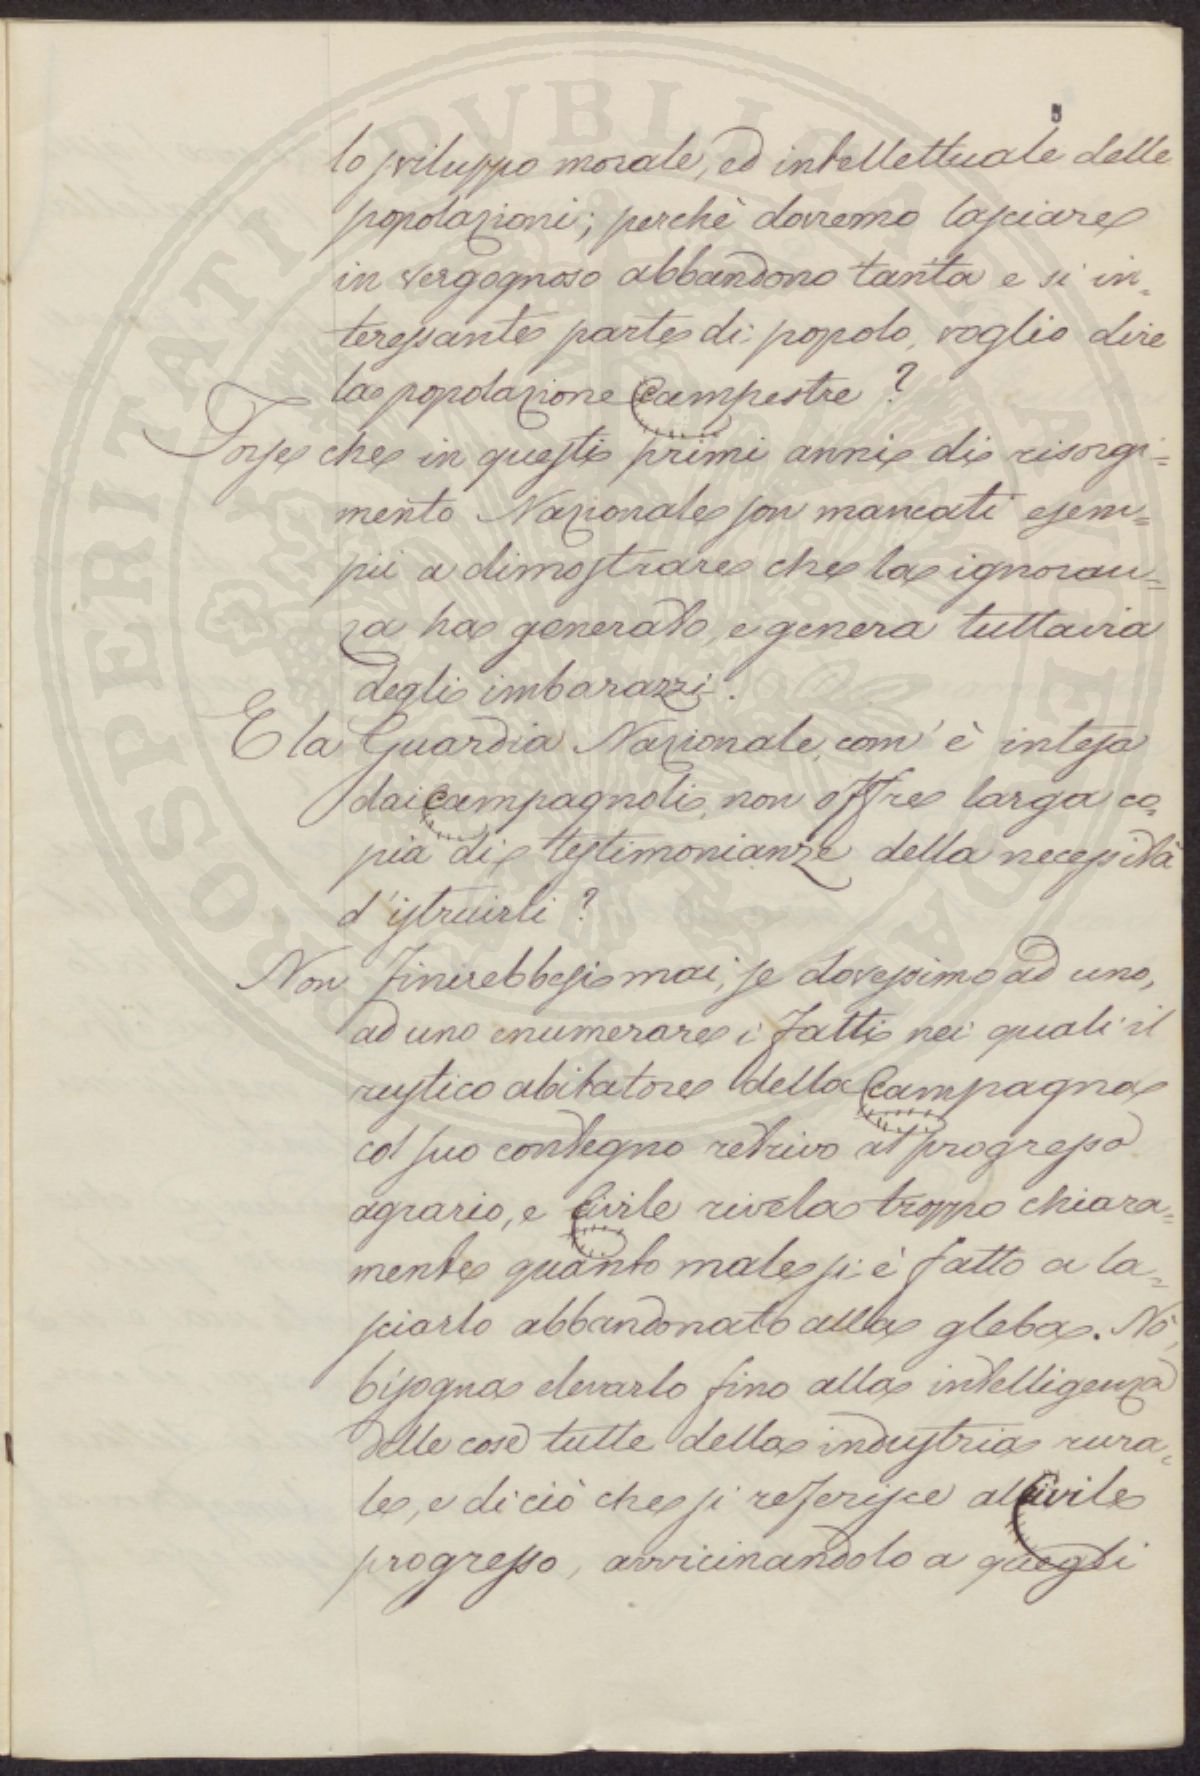 PROSPERITATI PUBLICAE AUGENDAE
5
lo sviluppo morale, ed intellettuale delle
popolazioni; perchè dovremo lasciare
in vergognoso abbandono tanta e si in-
teressante parte di popolo, voglio dire
la popolazione campestre?
Forse che in questi primi anni di risorgi=
mento Nazionale son mancati esem=
pii a dimostrare che la ignoran=
za ha generato, e genera tuttavia
degli imbarazzi.
E la Guardia Nazionale, com'è intesa
dai campagnoli, non offre larga co-
pia di testimonianze della necessità
d'istruirli?
Non finirebbesi mai, se dovessimo ad uno,
ad uno enumerare i fatti nei quali il
rustico abitatore della campagna
col suo contegno retrivo al progresso
agrario, e civile rivela troppo chiara=
mente quanto male si è fatto a la=
sciarlo abbandonato alla gleba. Nò,
bisogna elevarlo fino alla intelligenza
delle cose tutte della industria rura=
le, e di ciò che si referisce al civile
progresso, avvicinandolo a quegli